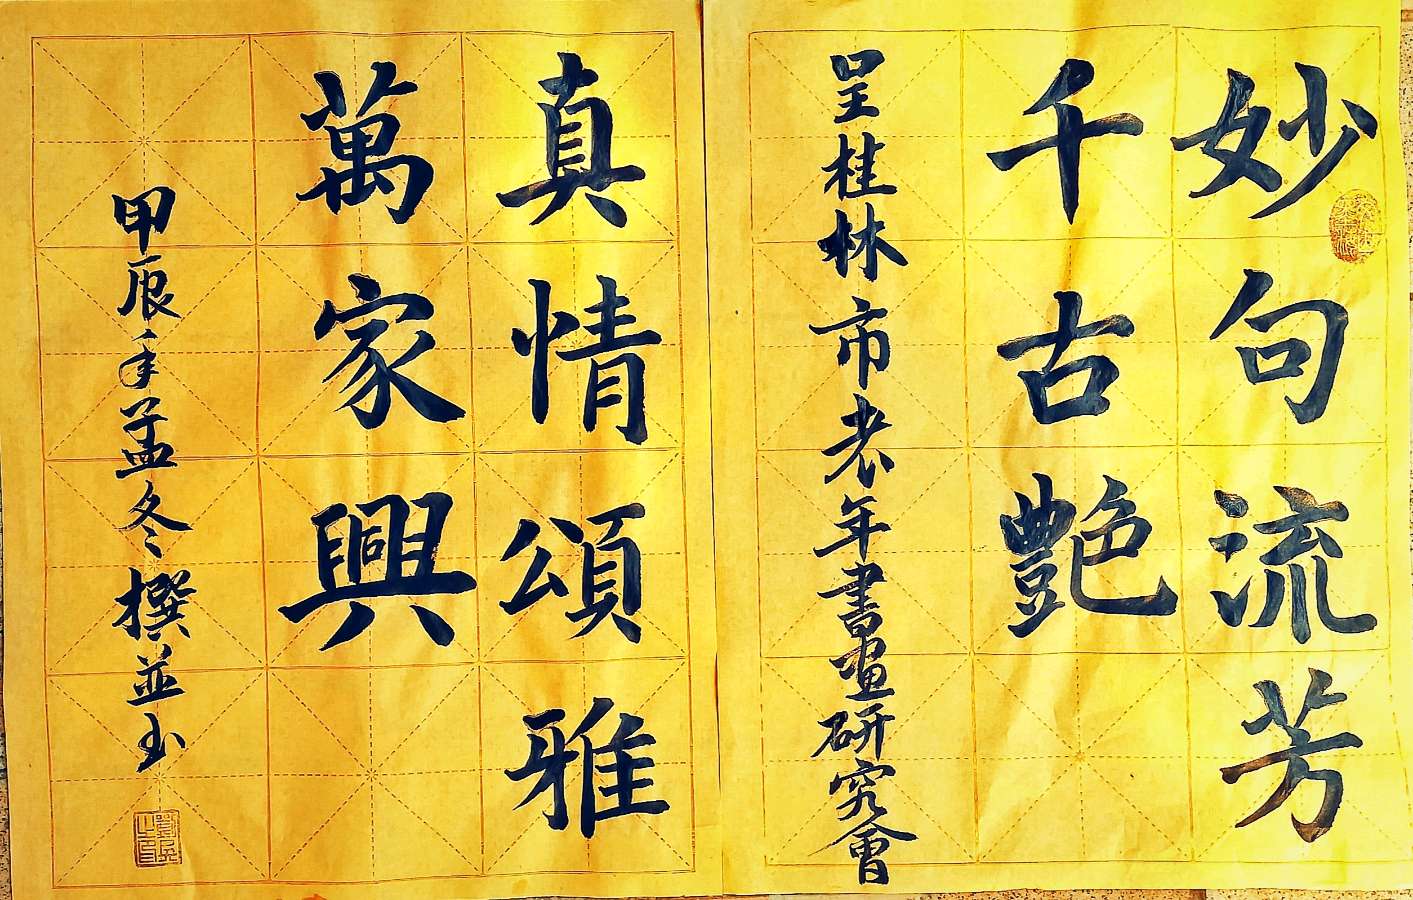 妙句流芳
千古艷
呈桂林市老年書畫研究會
真情頌雅
萬家興
甲辰年孟冬撰並书